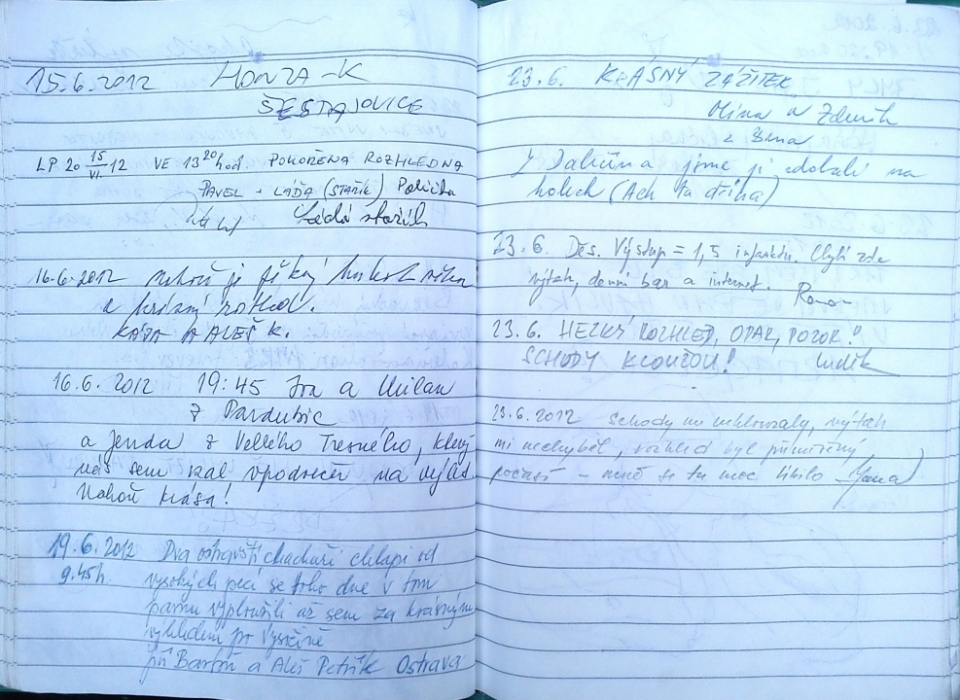 15.6.2012 HONZA-K
ŠESTAJOVICE
LP 20 15/VI. 12 VE 13 20 hod. POKOŘENA ROZHLEDNA
PAVEL + LÁĎA (STAŘÍK) Polička
Láďa stařík
16.6.2012 nahoř je
a krásný rozhled.
KÁŤA A ALEŠ K.
16.6.2012 19:45 Iva a Milan
z Pardubic
a Jenda z Velkého Třesného, který
nás sem vzal, v podvečer na výlet.
Nahoře krása!
19.6.2012 Dva ostravští chachaři chlapi od
9.45h. vysokých pecí se toho dne v tom
parnu vyploužili až sem za krásným
výhledem po Vysočině
Jiří Bartoň a Aleš Petřík Ostrava
23.6. KRÁSNÝ ZÁŽITEK
Olina a Zdeněk
z Brna
Z Dalečína jsme ji zdolali na
kolech (Ach ta dřina)
23.6. Des. Výstup = 1,5 infarktu. Chybí zde
výtah, denní bar a internet. Roman
23.6. HEZKÝ ROZHLED, OPAR, POZOR!
SCHODY KLOUŽOU! Luděk
23.6.2012 Schody mi neklouzaly, výtah
mi nechyběl, rozhled byl přiměřený
počasí – mně se tu moc líbilo Jana